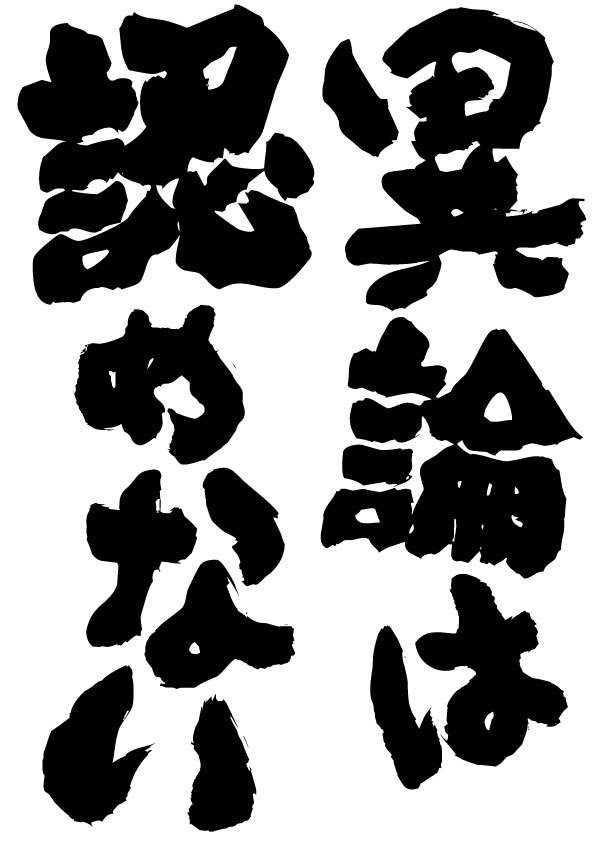 異論は
認めない